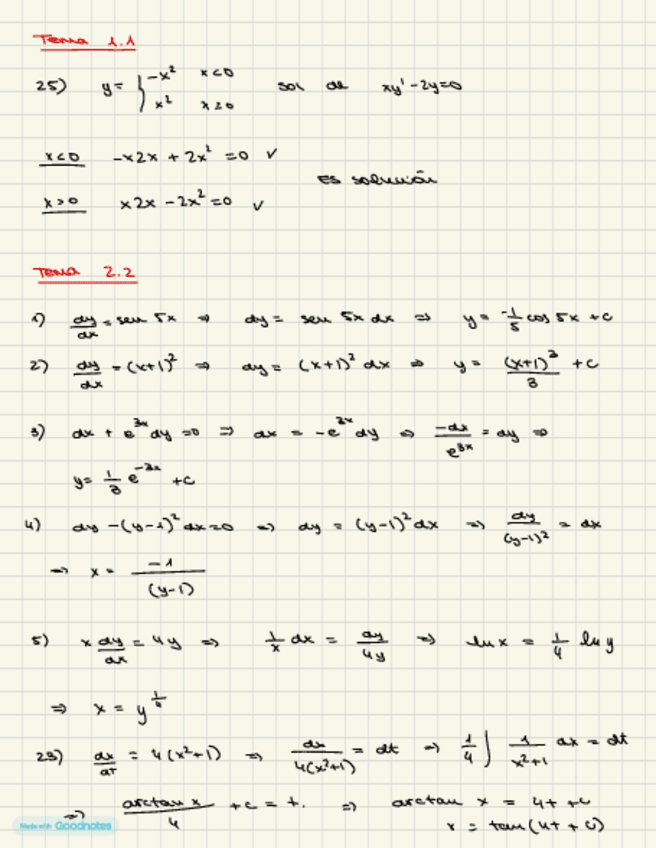 Tema 1.1
25) y = { -x² x<0 sol de xy' - 2y=0
x² x≥0
x<0 -x2x + 2x² = 0 ✓
Es solución
x>0 x2x - 2x² = 0 ✓
Tema 2.2
1) dy/dx = sen 5x ⇒ dy = sen 5x dx ⇒ y = -1/5 cos 5x + c
2) dy/dx = (x+1)² ⇒ dy = (x+1)² dx ⇒ y = (x+1)³/3 + c
3) dx + e^3x dy = 0 ⇒ dx = -e^3x dy ⇒ -dx/e^3x = dy ⇒
y = 1/3 e^-3x + c
4) dy - (y-1)² dx = 0 ⇒ dy = (y-1)² dx ⇒ dy/(y-1)² = dx
⇒ x = -1/(y-1)
5) x dy/dx = 4y ⇒ 1/x dx = dy/4y ⇒ ln x = 1/4 ln y
⇒ x = y^1/4
23) dx/dt = 4(x²+1) ⇒ dx/4(x²+1) = dt ⇒ 1/4 ∫ 1/x²+1 dx = dt
⇒ arctan x/4 + c = t. ⇒ arctan x = 4t + c
x = tan(4t + c)
Made with Goodnotes